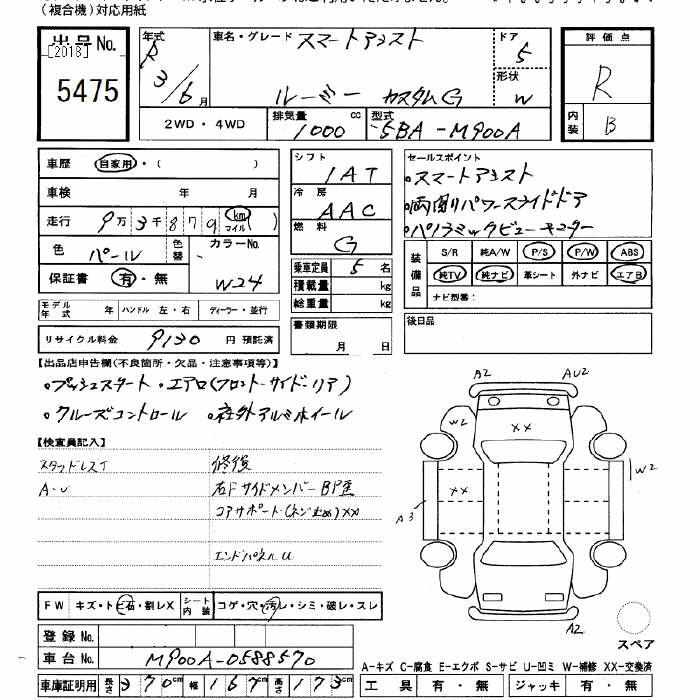 (複合機)対応用紙
出品No.
[2018]
5475
年式
R
3/6 月
車名・グレード スマートアシスト
ルーミー カスタムG
ドア 5
形状 W
評価点
R
内装 B
2WD・4WD
排気量 1000 cc
型式 5BA-M900A
車歴 自家用・( )
車検 年 月
走行 9万3千879 km マイル ( )
色 パール
色替
カラーNo. W24
保証書 有・無
モデル年式 年 ハンドル 左・右 ディーラー・並行
リサイクル料金 9130 円 預託済
シフト 1AT
冷房 AAC
燃料 G
乗車定員 5 名
積載量 kg
総重量 kg
書類期限
月 日
セールスポイント
・スマートアシスト
・両側パワースライドドア
・パノラミックビューモニター
装備品
S/R 純A/W P/S P/W ABS
純TV 純ナビ 革シート 外ナビ エアB
ナビ型番:
後日品
【出品店申告欄(不良箇所・欠品・注意事項等)】
・プッシュスタート ・エアロ(フロント・サイド・リア)
・クルーズコントロール ・社外アルミホイール
【検査員記入】
スタッドレスT
A・U
修復
右Fサイドメンバー
コアサポート(ネジ止め)XX
エンドパネルU
A2
AU2
W2
XX
W2
XX
A3
A2
スペア
FW キズ・トビ石・割レX
シート内装 コゲ・穴・汚レ・シミ・破レ・スレ
登録No.
車台No. M900A-0588570
車庫証明用 長さ 370cm 幅 167cm 高さ 173cm
A-キズ C-腐食 E-エクボ S-サビ U-凹ミ W-補修 XX-交換済
工具 有・無 ジャッキ 有・無